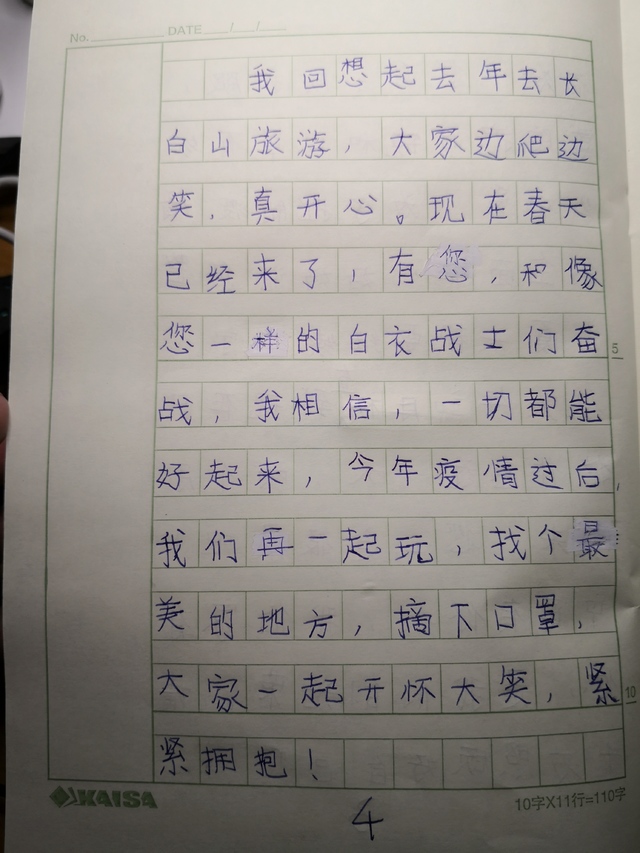 No. DATE / /
我回想起去年去长
白山旅游，大家边爬边
笑，真开心。现在春天
已经来了，有您，和像
您一样的白衣战士们奋
战，我相信，一切都能
好起来，今年疫情过后，
我们再一起玩，找个最
美的地方，摘下口罩，
大家一起开怀大笑，紧
紧拥抱！
5
10
KAISA
10字X11行=110字
4